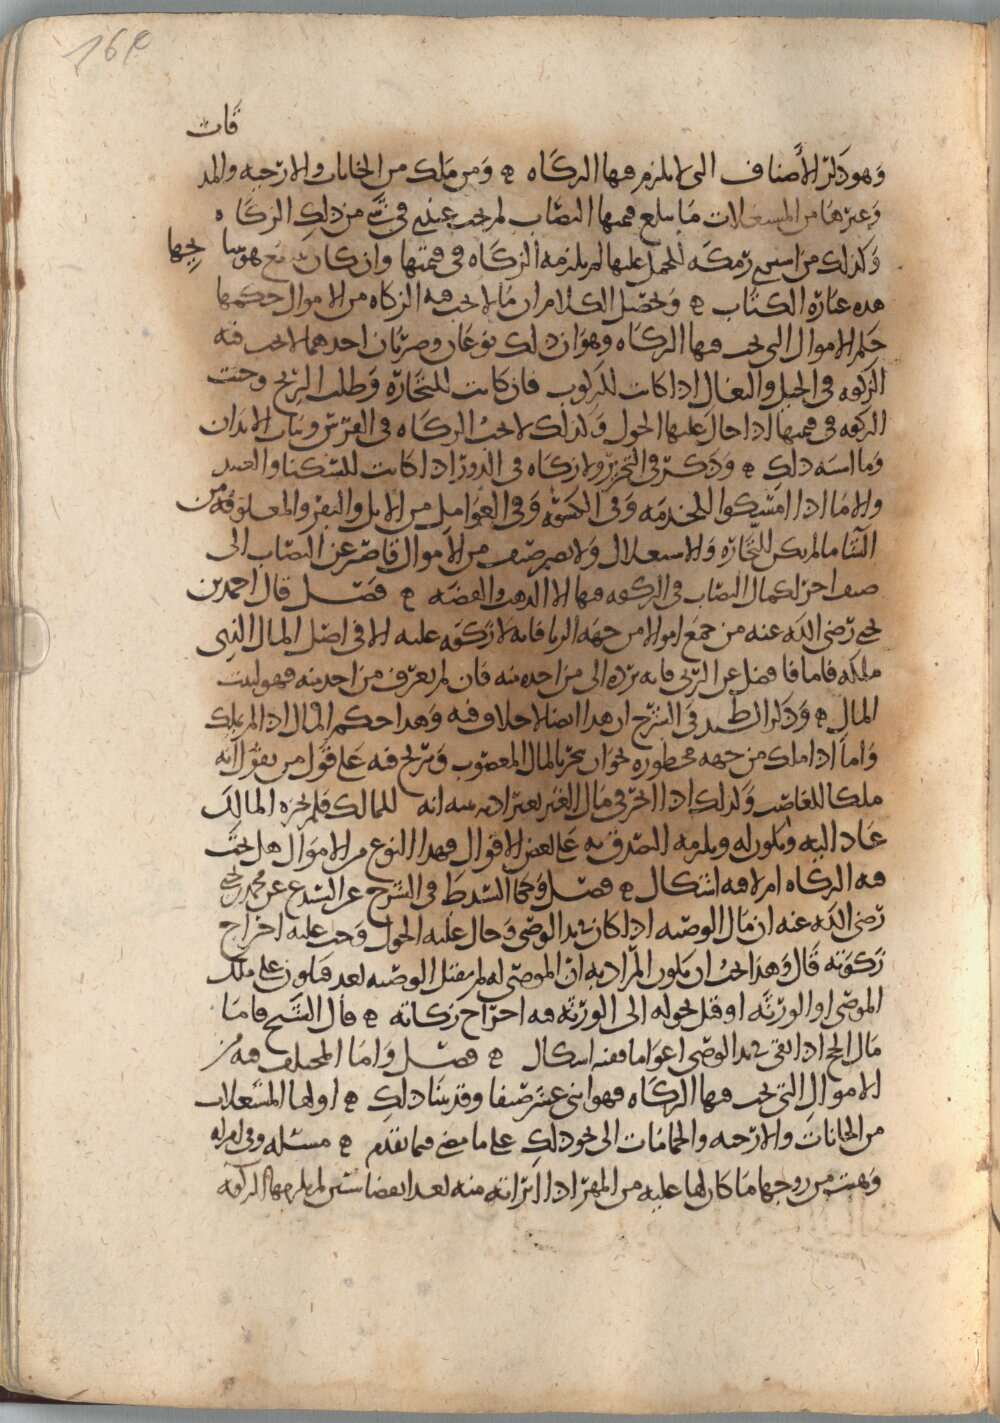 164
قات
وهو ذكر الأصناف التي لا يلزم فيها الزكاه ٥ ومن ملك من الخانات والارحيه والمد
وغيرها من المستغلات ما يبلغ قيمتها النصاب لم يجب عندي في شي من ذلك الزكاه
وكذلك من اشترى رمكه للحمل عليها لم يلزمه الزكاه في قيمتها وان كان هو نتاجها
هذه عبارة الكتاب ٥ وتحصل الكلام ان ما لا يجب فيه الزكاه من الاموال حكمها
حكم الاموال التي يجب فيها الزكاه وهو ان ذلك نوعان وضربان احدهما لا يجب فيه
الزكوه في الخيل والبغال اذا كانت للركوب فان كانت للتجارة وطلب الربح وجبت
الزكوه في قيمتها اذا حال عليها الحول وكذلك لا يجب الزكاه في الفرش وثياب الابدان
وما اشبه ذلك ٥ وذكر في التحرير ولا زكاه في الدور اذا كانت للسكنا والعبيد
والاما اذا امسكوا للخدمه وفي الكسوة وفي العوامل من الابل والبقر والمعلوفه من
الشا ما لم يكن للتجارة والاستغلال ولا يضم صنف من الاموال قاصر عن النصاب الى
صنف اخر لكمال النصاب في الزكوه فيها الا الذهب والفضه ٥ فصل قال احمد بن
يحيى رضي الله عنه من جمع اموالا من جهه الربا فانه لا زكوه عليه الا في اصل المال الذي
ملكه فاما ما فضل عن الربى فانه يرده الى من اخده منه فان لم يعرف من اخد منه فهو لبيت
المال ٥ وذكر في الشرح ان هذا ايضا لا خلاف فيه وهذا حكم المال اذا لم يملك
واما اذا ملك من جهه محظوره نحو ان يتجر بالمال المغصوب ويربح فيه على قول من يقول انه
ملكا للغاصب وكذلك اذا اتجر في مال الغير بغير اذنه بنيه انه للمالك فلم يجزه المالك
عاد اليه ويكون له ويلزمه التصدق به على بعض الاقوال فهذا النوع من الاموال هل يجب
فيه الزكاه ام لا فيه اشكال ٥ فصل وحكا السيد ط في الشرح عن السيد ع عن محمد بن يحيى
رضي الله عنه ان مال الوصيه اذا كان بيد الوصي وحال عليه الحول وجب عليه اخراج
زكوته قال وهذا يجب ان يكون المراد به ان الموصى له لم يقبل الوصيه بعد فيكون على ملك
الموصي او الورثه او قبل تحوله الى الورثة فيه اخراج زكاته ٥ قال الشيخ فاما
مال الحج اذا بقي بيد الوصي اعواما ففيه اشكال ٥ فصل واما المختلف فيه من
الاموال التي يجب فيها الزكاه فهو اثنى عشر صنفا وقد بينا ذلك ٥ اولها المستغلات
من الخانات والارحيه والحمامات الى نحو ذلك على ما مضى فيما تقدم ٥ مسئله وفي امراه
وهبت من زوجها ما كان لها عليه من المهر اذا ابراته منه بعد انقضا سنتين لم يلزمها الزكوه